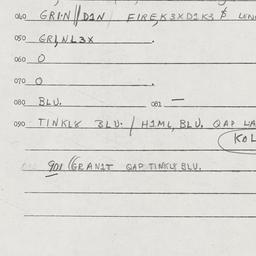 040 GRIN//D1N FIRE,K3XD1K3 $ LENG
050 GRINL3X
060 0
070 0
080 BLU. 081 —
090 TINKL8 BLU. / H1ML, BLU. QAP LA
KOL
901 ((GRAN1T QAP TINKL8 BLU.